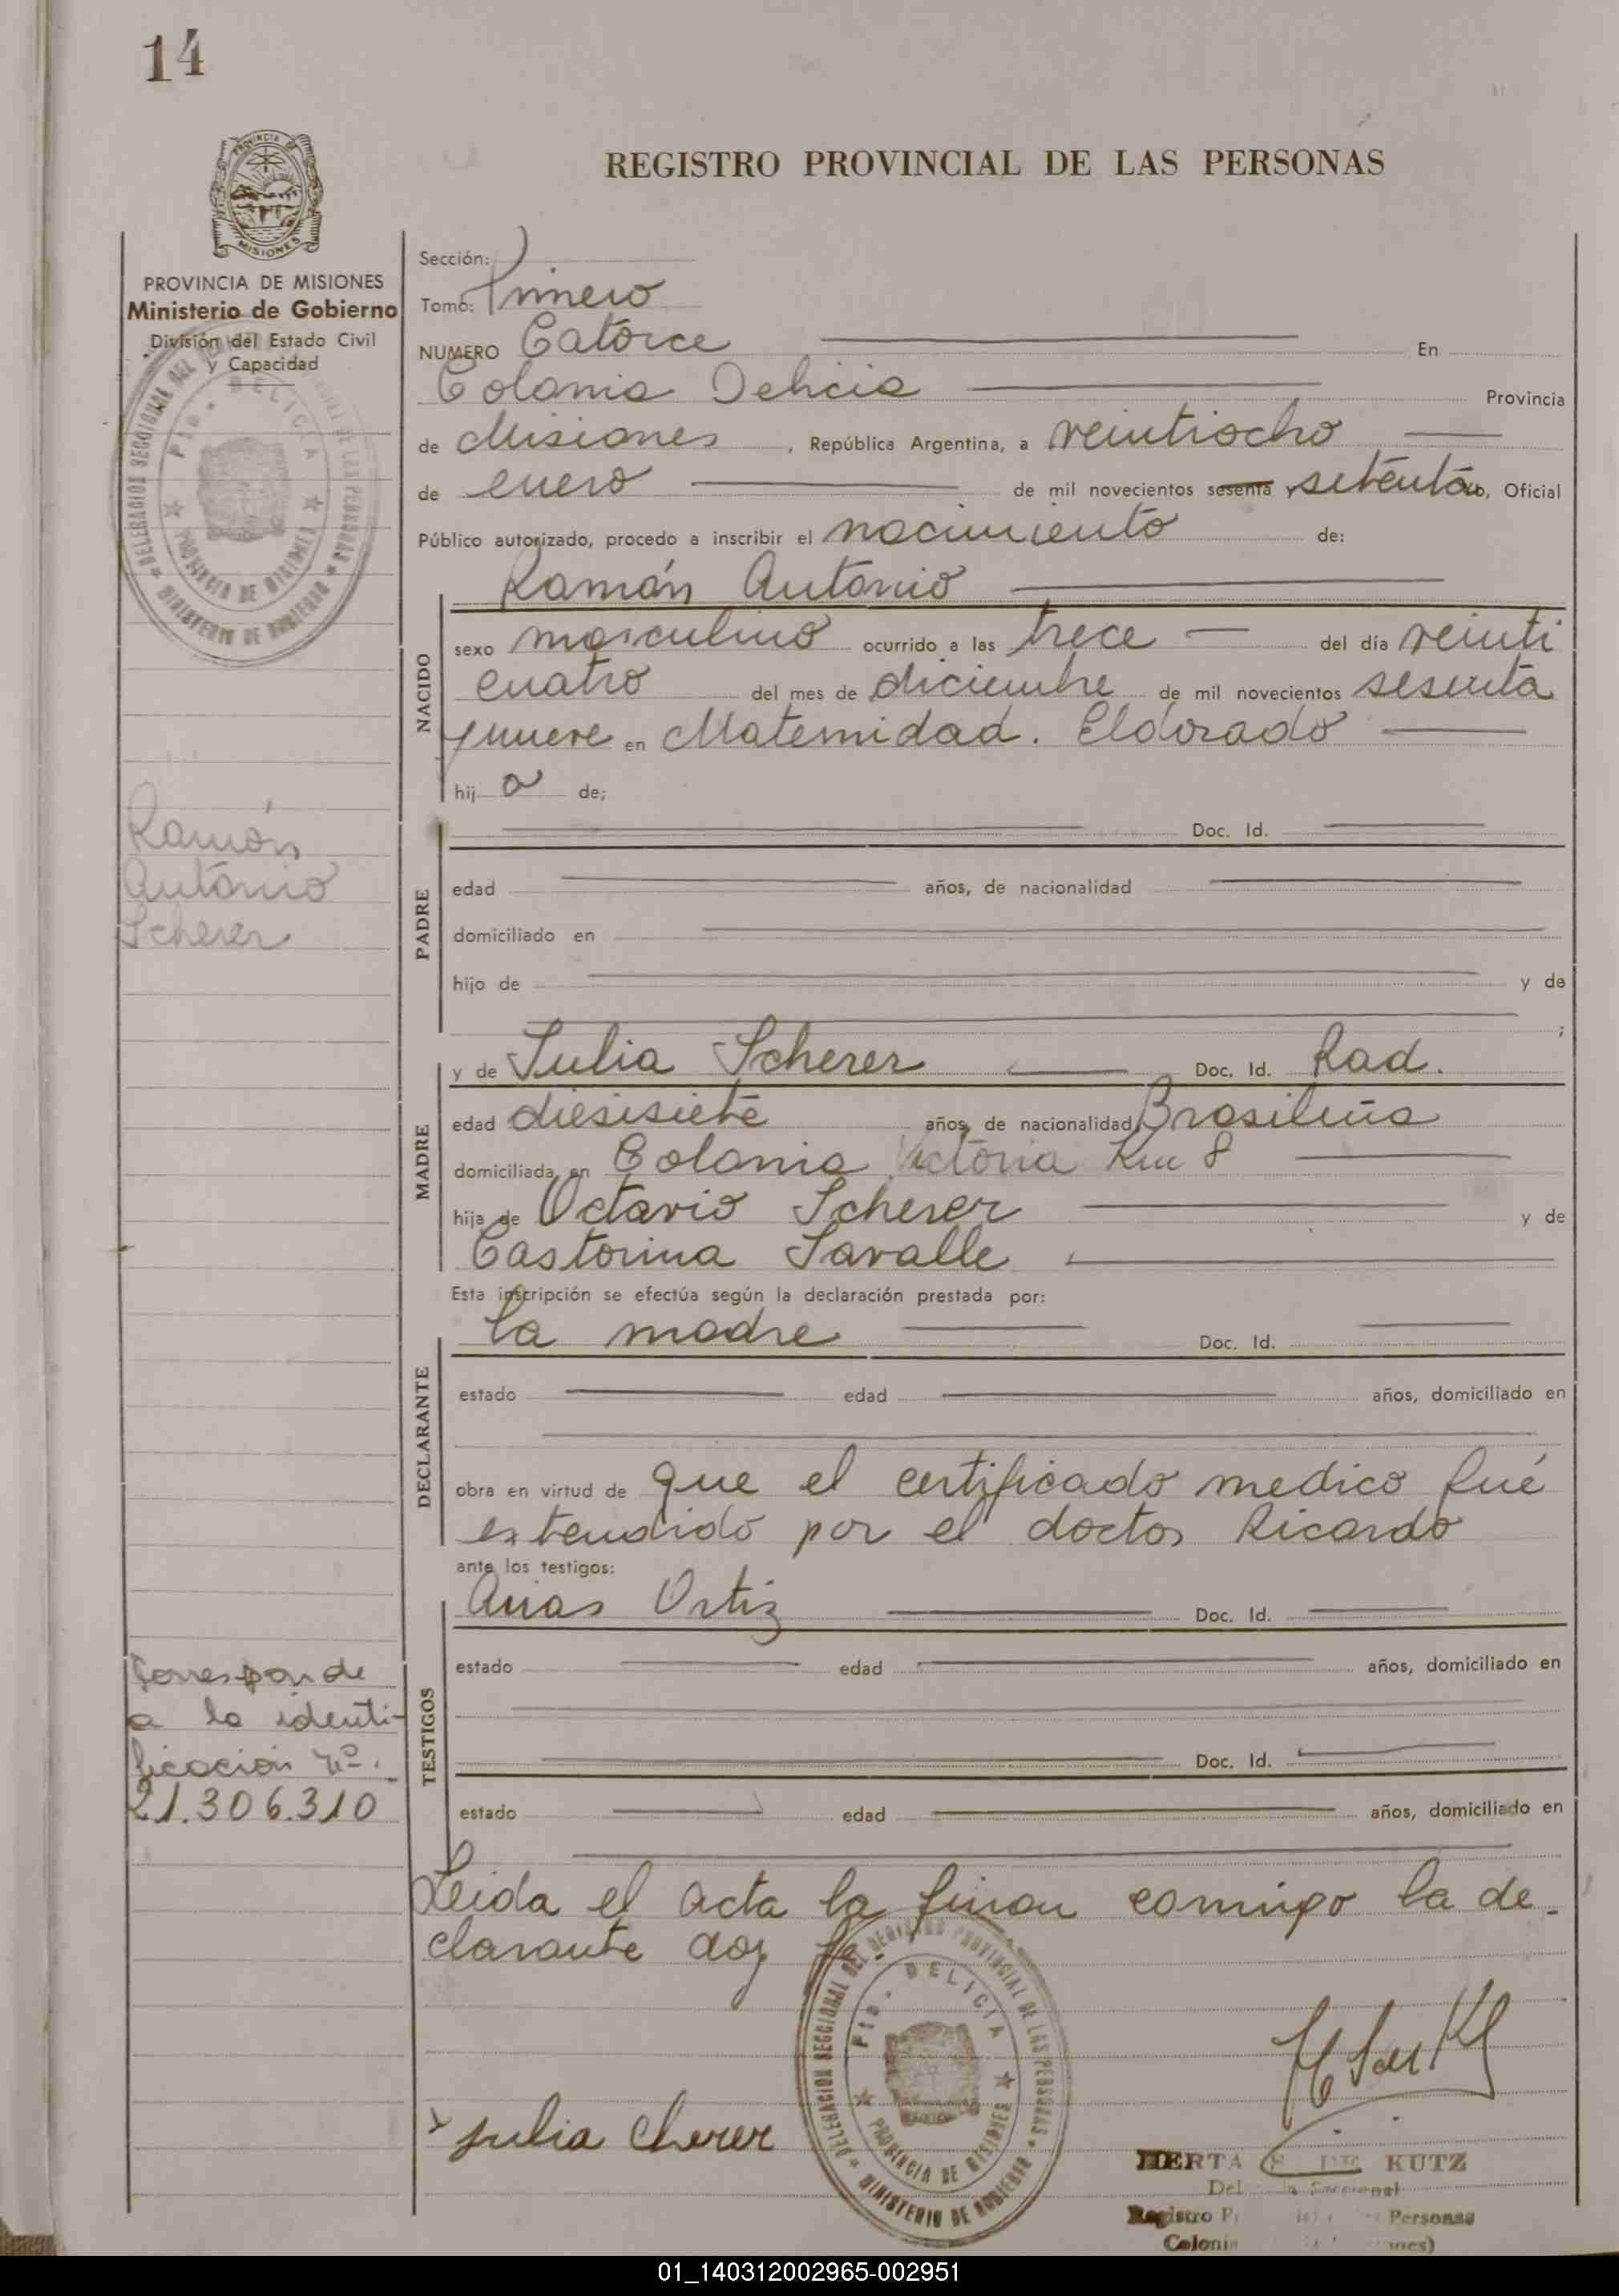 14
PROVINCIA DE
MISIONES
REGISTRO PROVINCIAL DE LAS PERSONAS
PROVINCIA DE MISIONES
Ministerio de Gobierno
División del Estado Civil
y Capacidad
Sección:
Tomo: Primero
NUMERO Catorce En
Colonia Delicia Provincia
de Misiones, República Argentina, a veintiocho
de enero de mil novecientos sesenta y setenta, Oficial
Público autorizado, procedo a inscribir el nacimiento de:
Ramón Antonio
NACIDO
sexo masculino ocurrido a las trece del día veinti
cuatro del mes de diciembre de mil novecientos sesenta
y nueve en Maternidad. Eldorado
hij o de;
Ramón
Antonio
Scherer
PADRE
Doc. Id.
edad años, de nacionalidad
domiciliado en
hijo de y de
;
MADRE
y de Julia Scherer Doc. Id. Rad.
edad diesisiete años, de nacionalidad Brasileña
domiciliada en Colonia Victoria Km 8
hija de Octavio Scherer y de
Castorina Savalle
Esta inscripción se efectúa según la declaración prestada por:
DECLARANTE
la madre Doc. Id.
estado edad años, domiciliado en
obra en virtud de que el certificado medico fué
extendido por el doctor Ricardo
ante los testigos:
TESTIGOS
Arias Ortiz Doc. Id.
estado edad años, domiciliado en
Doc. Id.
estado edad años, domiciliado en
Corresponde
a la identi-
ficación Nº.
21.306.310
Leida el acta la firman comigo la de-
clarante doy fe.
DELEGACION SECCIONAL DEL REGISTRO PROVINCIAL DE LAS PERSONAS
Pto. DELICIA
PROVINCIA DE MISIONES
MINISTERIO DE GOBIERNO
x julia cherer
HERTA S. DE KUTZ
Registro P Personas
Colonia
01_140312002965-002951